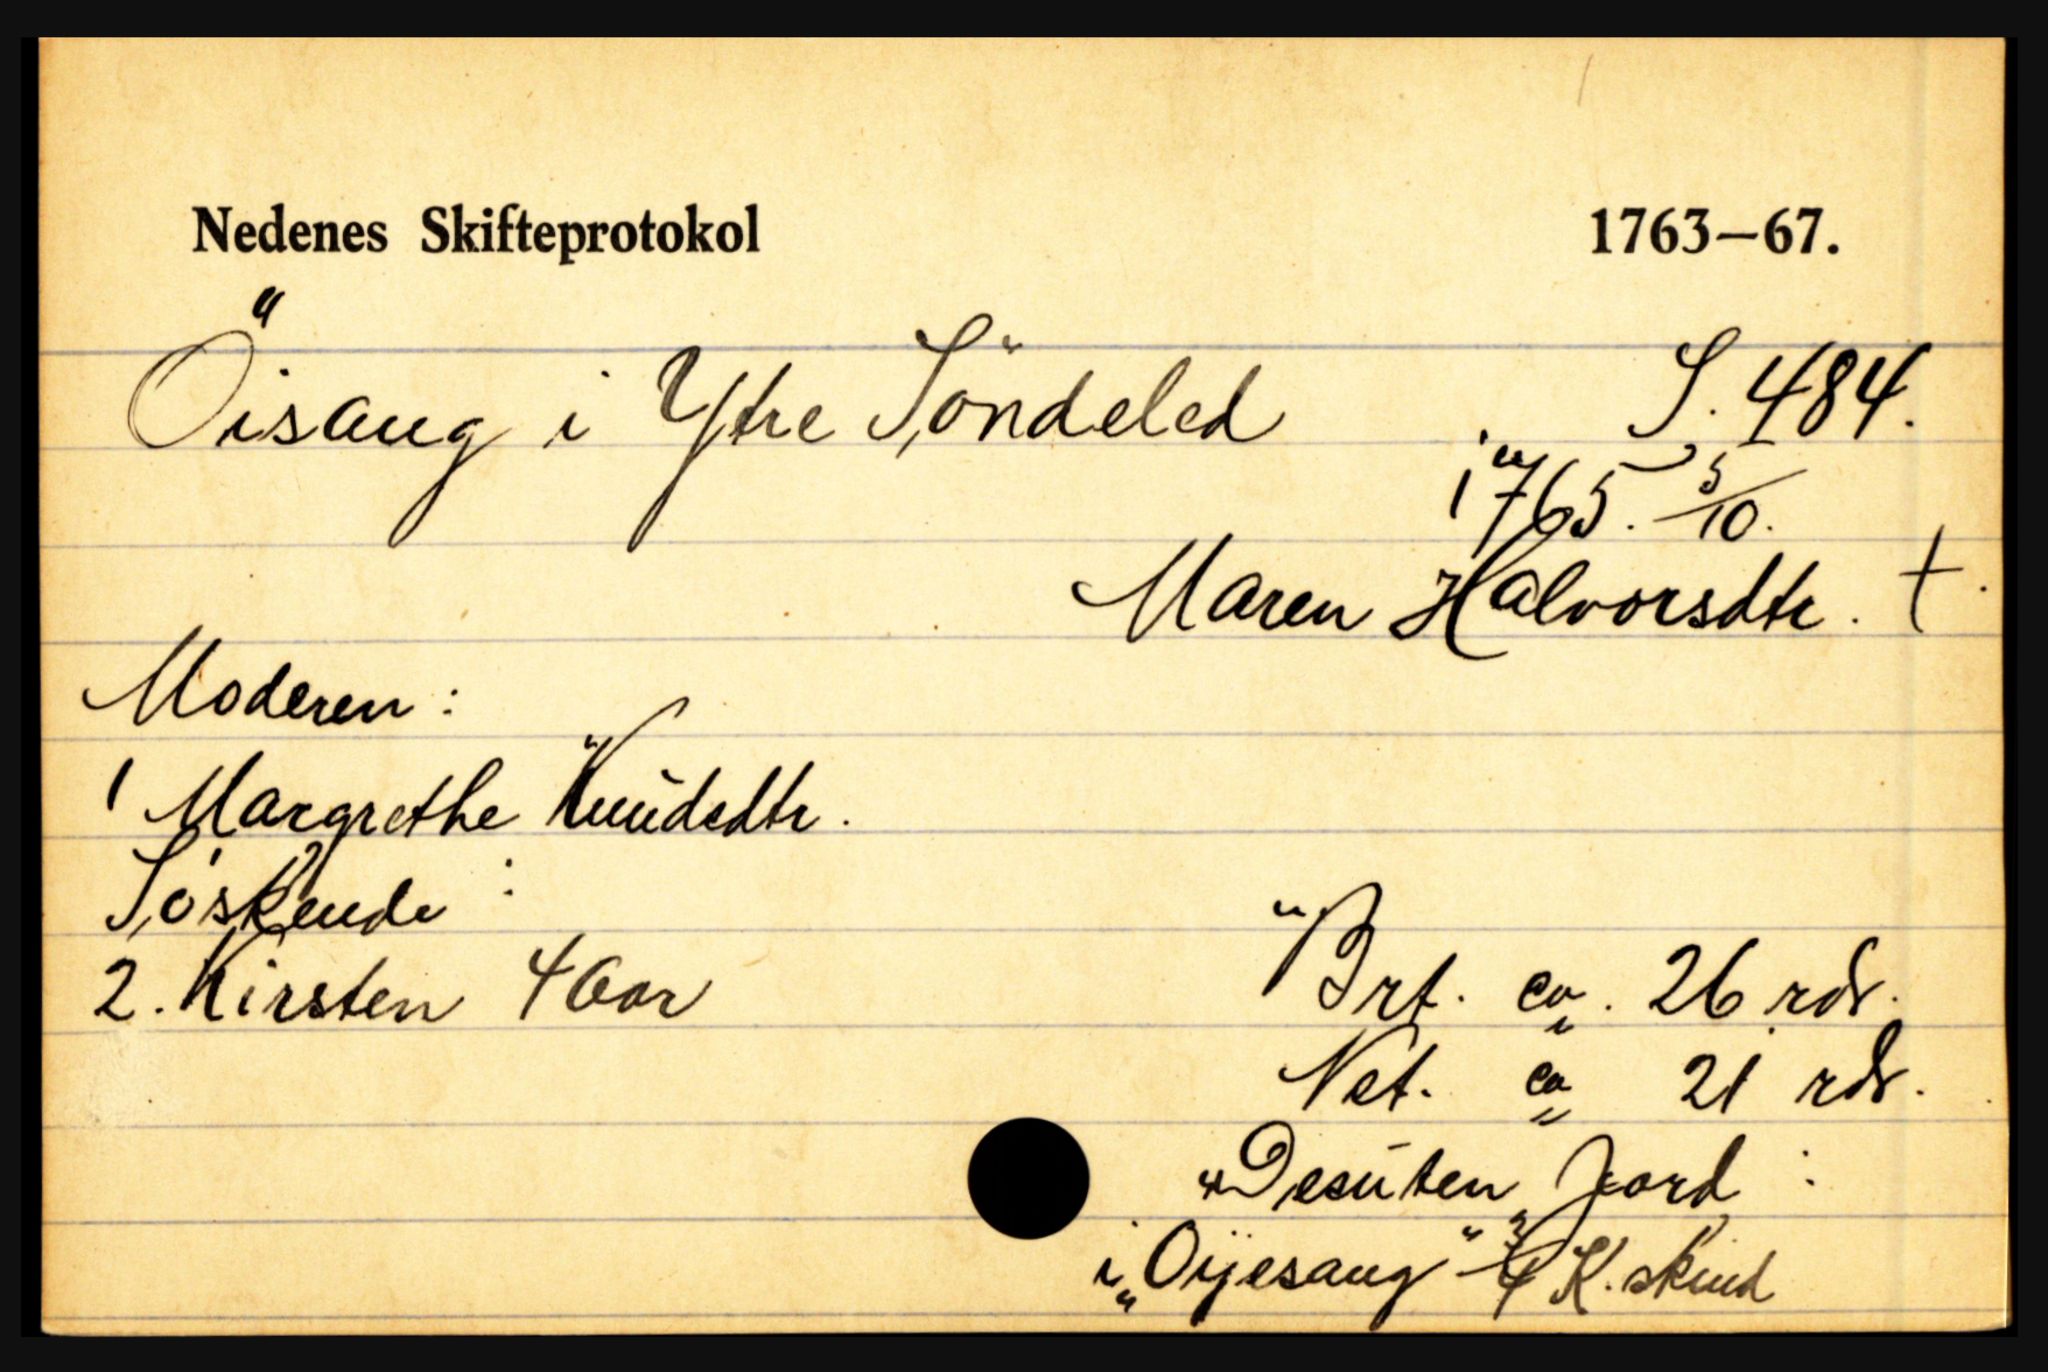 Nedenes Skifteprotokol 1763—67.
Öisang i Ytre Söndeled S. 484.
1765. 5/10.
Maren Halvorsdtr. †.
Moderen:
1 Margrethe Knudsdtr.
Söskende:
2. Kirsten 4 Aar
Brt. ca. 26 rdr.
Net. ca 21 rdr.
Desuten Jord:
i "Oijesang" 3/4 K. skind